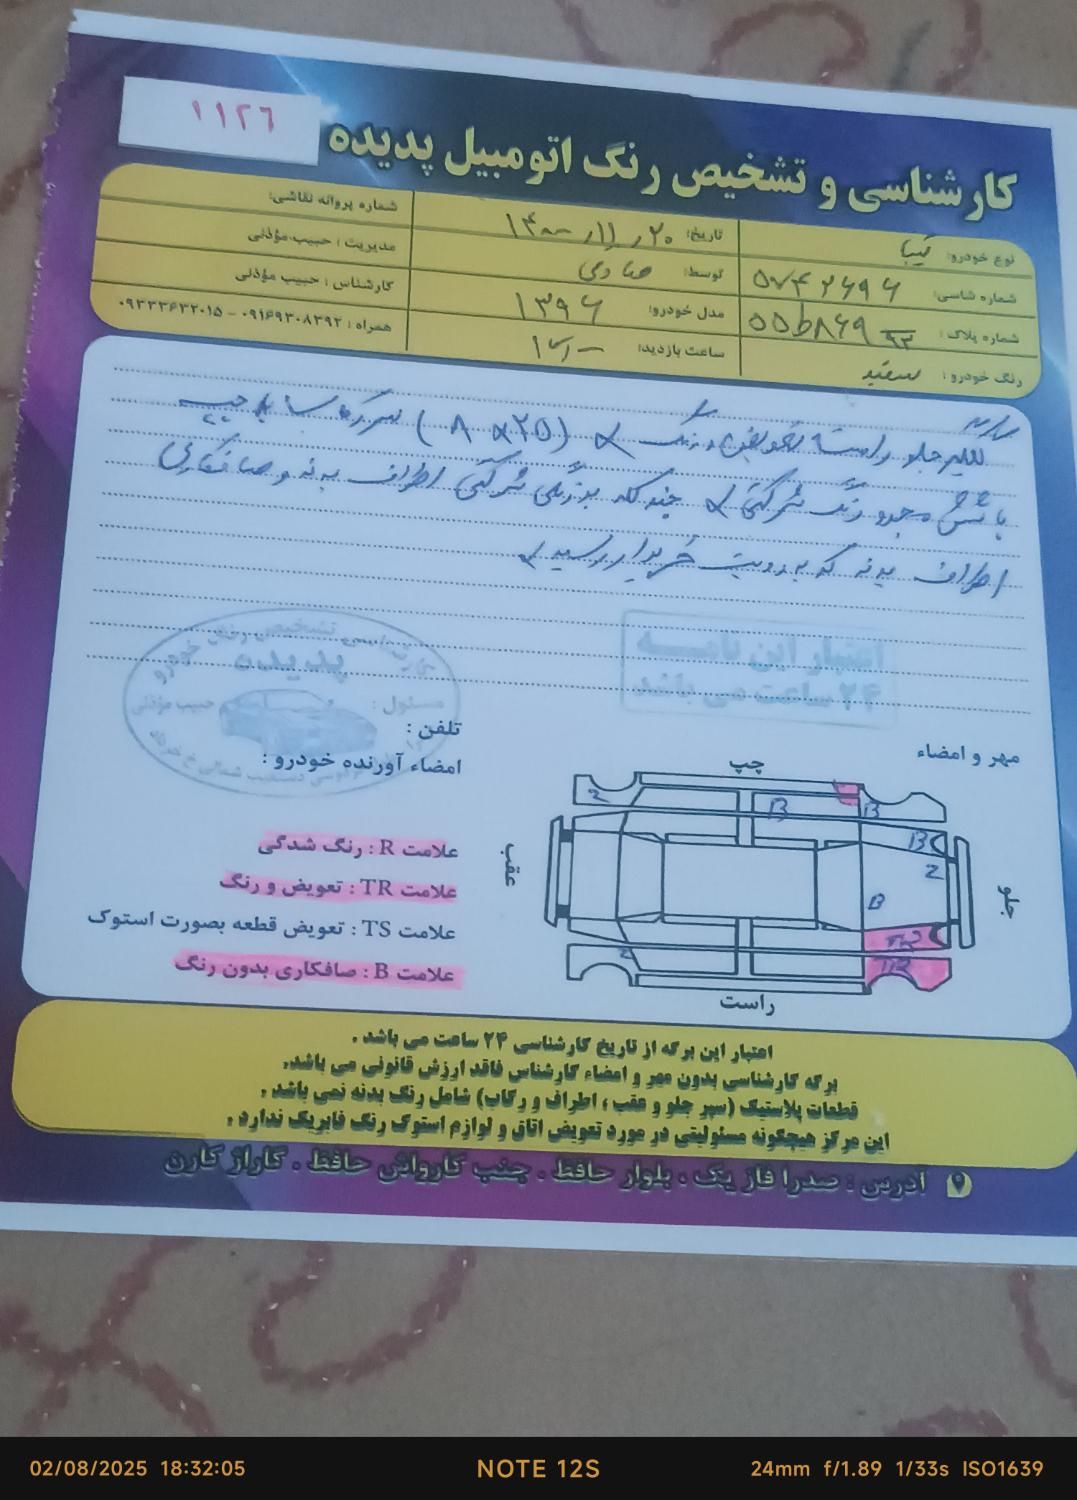 ۱۱۲۶
کارشناسی و تشخیص رنگ اتومبیل پدیده
نوع خودرو: تیبا
تاریخ: ۱۴۰۰/۱۱/۲۰
شماره پروانه نقاشی:
شماره شاسی: ۵۷۴۲۶۹۶
توسط:
مدیریت: حبیب مؤذنی
شماره پلاک:
مدل خودرو: ۱۳۹۶
کارشناس: حبیب مؤذنی
رنگ خودرو: سفید
ساعت بازدید:
همراه: ۰۹۱۶۹۳۰۸۳۹۲ - ۰۹۳۳۳۶۳۲۰۱۵
گلگیر جلو راست تعویض و رنگ
رنگ شرکتی چند لکه بزرگی شرکتی اطراف بدنه و صافکاری
اطراف بدنه که به رویت خریدار رسید
کارشناسی تشخیص رنگ خودرو
پدیده
مسئول: حبیب مؤذنی
اعتبار این نامه
۲۴ ساعت می باشد
مهر و امضاء
تلفن:
امضاء آورنده خودرو:
چپ
عقب
جلو
راست
2
B
B
B
2
B
TR
TR
2
علامت R: رنگ شدگی
علامت TR: تعویض و رنگ
علامت TS: تعویض قطعه بصورت استوک
علامت B: صافکاری بدون رنگ
اعتبار این برگه از تاریخ کارشناسی ۲۴ ساعت می باشد.
برگه کارشناسی بدون مهر و امضاء کارشناس فاقد ارزش قانونی می باشد.
قطعات پلاستیک (سپر جلو و عقب، اطراف و رکاب) شامل رنگ بدنه نمی باشد.
این مرکز هیچگونه مسئولیتی در مورد تعویض اتاق و لوازم استوک رنگ فابریک ندارد.
آدرس: صدرا فاز یک. بلوار حافظ. جنب کارواش حافظ. گاراژ کارن
02/08/2025 18:32:05
NOTE 12S
24mm f/1.89 1/33s ISO1639